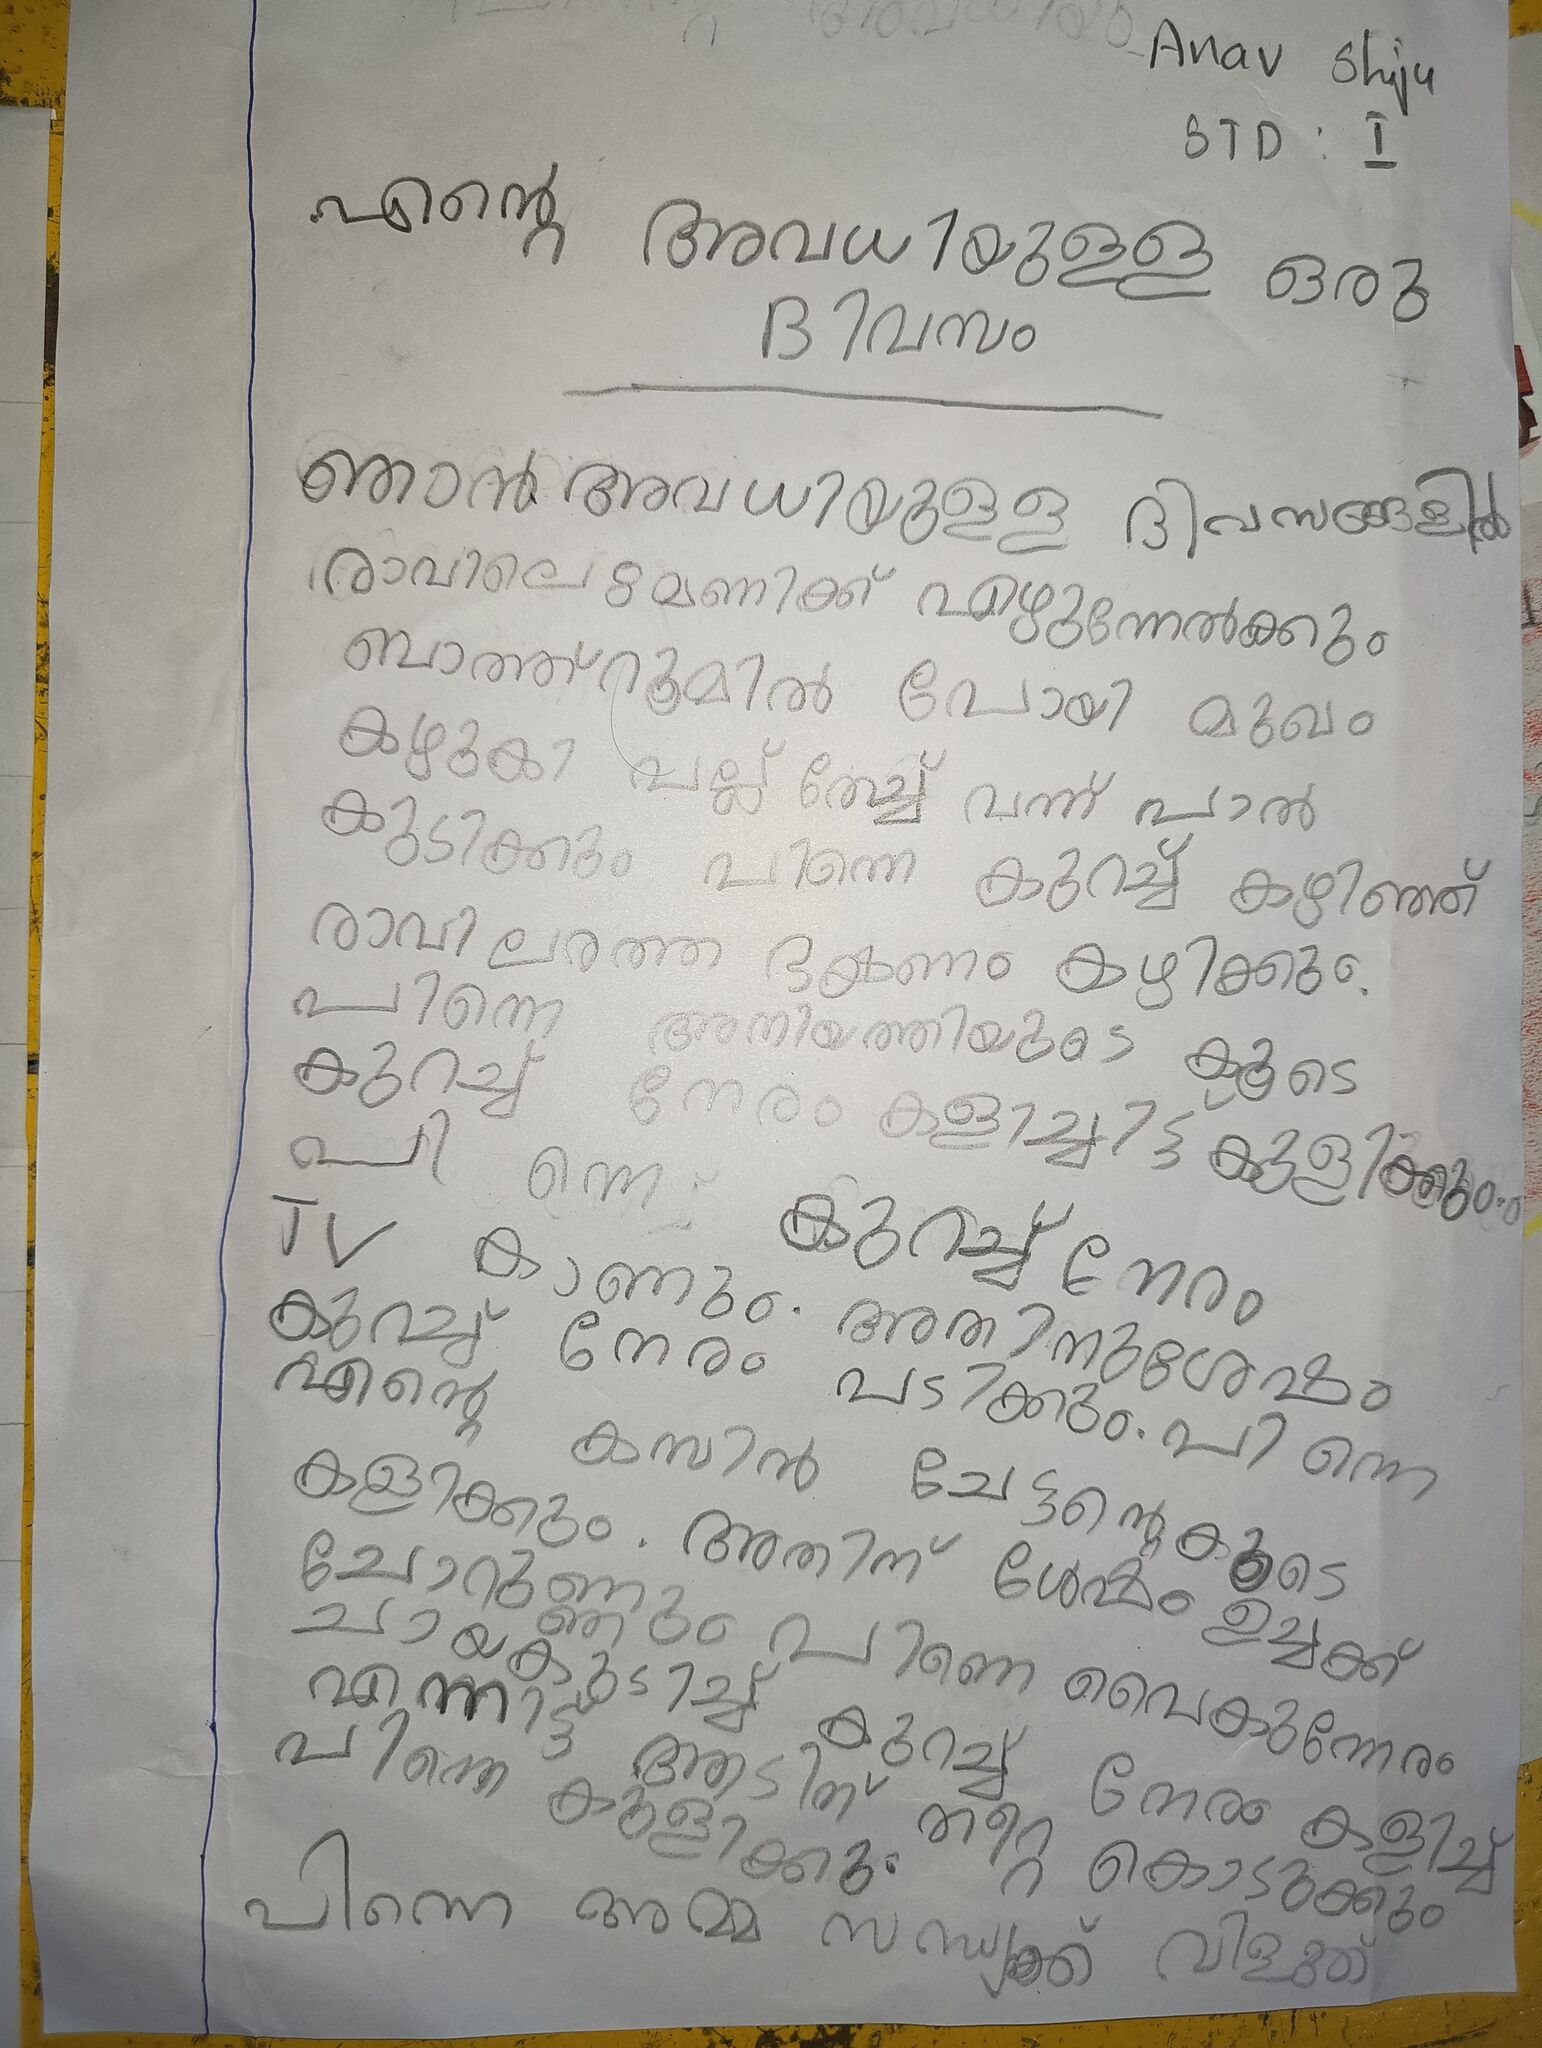 Anav Shiju
STD : I
എന്റെ അവധിയുള്ള ഒരു
ദിവസം
ഞാൻ അവധിയുള്ള ദിവസങ്ങളിൽ
രാവിലെ 8 മണിക്ക് എഴുന്നേൽക്കും
ബാത്ത്റൂമിൽ പോയി മുഖം
കഴുകി പല്ല് തേച്ച് വന്ന് പാൽ
കുടിക്കും പിന്നെ കുറച്ച് കഴിഞ്ഞ്
രാവിലത്തെ ഭക്ഷണം കഴിക്കും.
പിന്നെ അനിയത്തിയുടെ കൂടെ
കുറച്ച് നേരം കളിച്ചിട്ട് കുളിക്കും.
പിന്നെ കുറച്ച് നേരം
TV കാണും. അതിനുശേഷം
കുറച്ച് നേരം പടിക്കും. പിന്നെ
എന്റെ കസിൻ ചേട്ടന്റെ കൂടെ
കളിക്കും. അതിന് ശേഷം ഉച്ചക്ക്
ചോറുണ്ണും പിന്നെ വൈകുന്നേരം
ചായകുടിച്ച് കുറച്ച് നേരം കളിച്ച്
എന്നിട്ട് ആടിന് തീറ്റ കൊടുക്കും
പിന്നെ കുളിക്കും.
പിന്നെ അമ്മ സന്ധ്യക്ക് വിളക്ക്